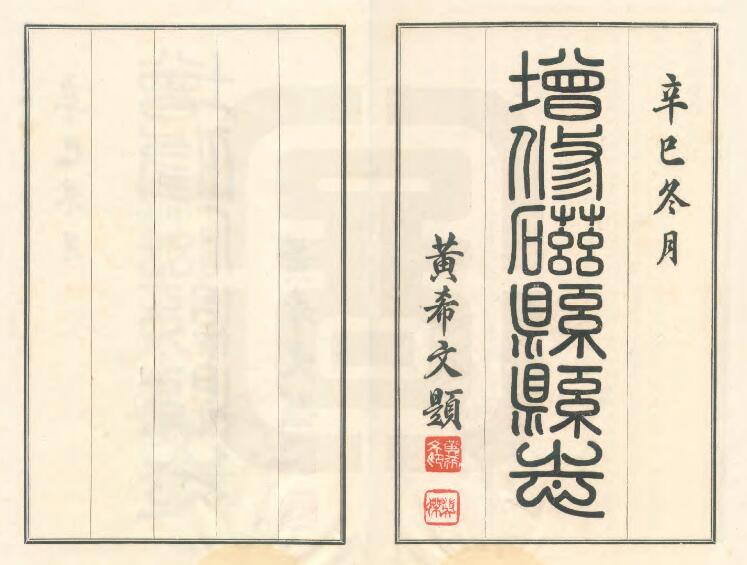 辛巳冬月
增修磁縣縣志
黃希文題